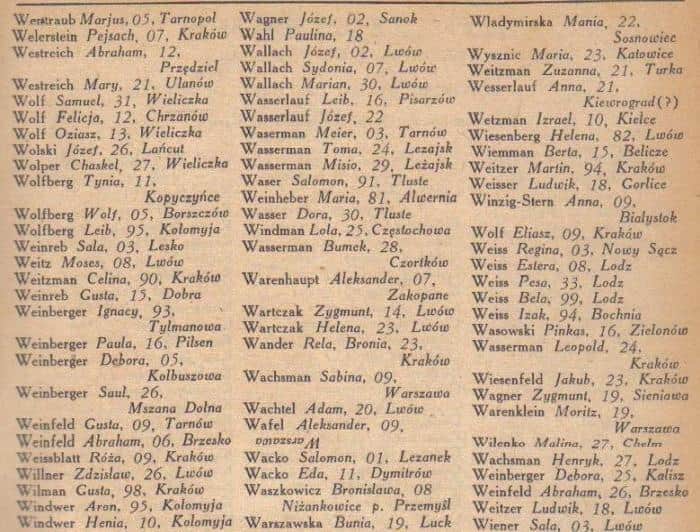 Werstraub Marjus, 05, Tarnopol
Welerstein Pejsach, 07, Kraków
Westreich Abraham, 12,
Przędziel
Westreich Mary, 21, Ulanów
Wolf Samuel, 31, Wieliczka
Wolf Felicja, 12, Chrzanów
Wolf Oziasz, 13, Wieliczka
Wolski Józef, 26, Łańcut
Wolper Chaskel, 27, Wieliczka
Wolfberg Tynia, 11,
Kopyczyńce
Wolfberg Wolf, 05, Borszczów
Wolfberg Leib, 95, Kołomyja
Weinreb Sala, 03, Lesko
Weitz Moses, 08, Lwów
Weitzman Celina, 90, Kraków
Weinreb Gusta, 15, Dobra
Weinberger Ignacy, 93,
Tylmanowa
Weinberger Paula, 16, Pilsen
Weinberger Debora, 05,
Kolbuszowa
Weinberger Saul, 26,
Mszana Dolna
Weinfeld Gusta, 09, Tarnów
Weinfeld Abraham, 06, Brzesko
Weissblatt Róża, 09, Kraków
Willner Zdzisław, 26, Lwów
Wilman Gusta, 98, Kraków
Windwer Aron, 95, Kołomyja
Windwer Henia, 10, Kołomyja
Wagner Józef, 02, Sanok
Wahl Paulina, 18
Wallach Józef, 02, Lwów
Wallach Sydonia, 07, Lwów
Wallach Marian, 30, Lwów
Wasserlauf Leib, 16, Pisarzów
Wasserlauf Józef, 22
Waserman Meier, 03, Tarnów
Wasserman Toma, 24, Leżajsk
Wasserman Misio, 29, Leżajsk
Waser Salomon, 91, Tluste
Weinheber Maria, 81, Alwernia
Wasser Dora, 30, Tluste
Windman Lola, 25, Częstochowa
Wasserman Bumek, 28,
Czortków
Warenhaupt Aleksander, 07,
Zakopane
Wartczak Zygmunt, 14, Lwów
Wartczak Helena, 23, Lwów
Wander Rela, Bronia, 23,
Kraków
Wachsman Sabina, 09,
Warszawa
Wachtel Adam, 20, Lwów
Wafel Aleksander, 09,
Warszawa
Wacko Salomon, 01, Lezanek
Wacko Eda, 11, Dymitrów
Waszkowicz Bronisława, 08
Niżankowice p. Przemyśl
Warszawska Bunia, 19, Luck
Wladymirska Mania, 22,
Sosnowiec
Wysznic Maria, 23, Katowice
Weitzman Zuzanna, 21, Turka
Wesserlauf Anna, 21,
Kiewrograd(?)
Wetzman Izrael, 10, Kielce
Wiesenberg Helena, 82, Lwów
Wiemman Berta, 15, Belicze
Weitzer Martin, 94, Kraków
Weisser Ludwik, 18, Gorlice
Winzig-Stern Anna, 09,
Białystok
Wolf Eliasz, 09, Kraków
Weiss Regina, 03, Nowy Sącz
Weiss Estera, 08, Lodz
Weiss Pesa, 33, Lodz
Weiss Bela, 99, Lodz
Weiss Izak, 94, Bochnia
Wasowski Pinkas, 16, Zielonów
Wasserman Leopold, 24,
Kraków
Wiesenfeld Jakub, 23, Kraków
Wagner Zygmunt, 19, Sieniawa
Warenklein Moritz, 19,
Warszawa
Wilenko Malina, 27, Chelm
Wachsman Henryk, 27, Lodz
Weinberger Debora, 25, Kalisz
Weinfeld Abraham, 26, Brzesko
Weitzer Ludwik, 18, Lwów
Wiener Sala, 03, Lwów